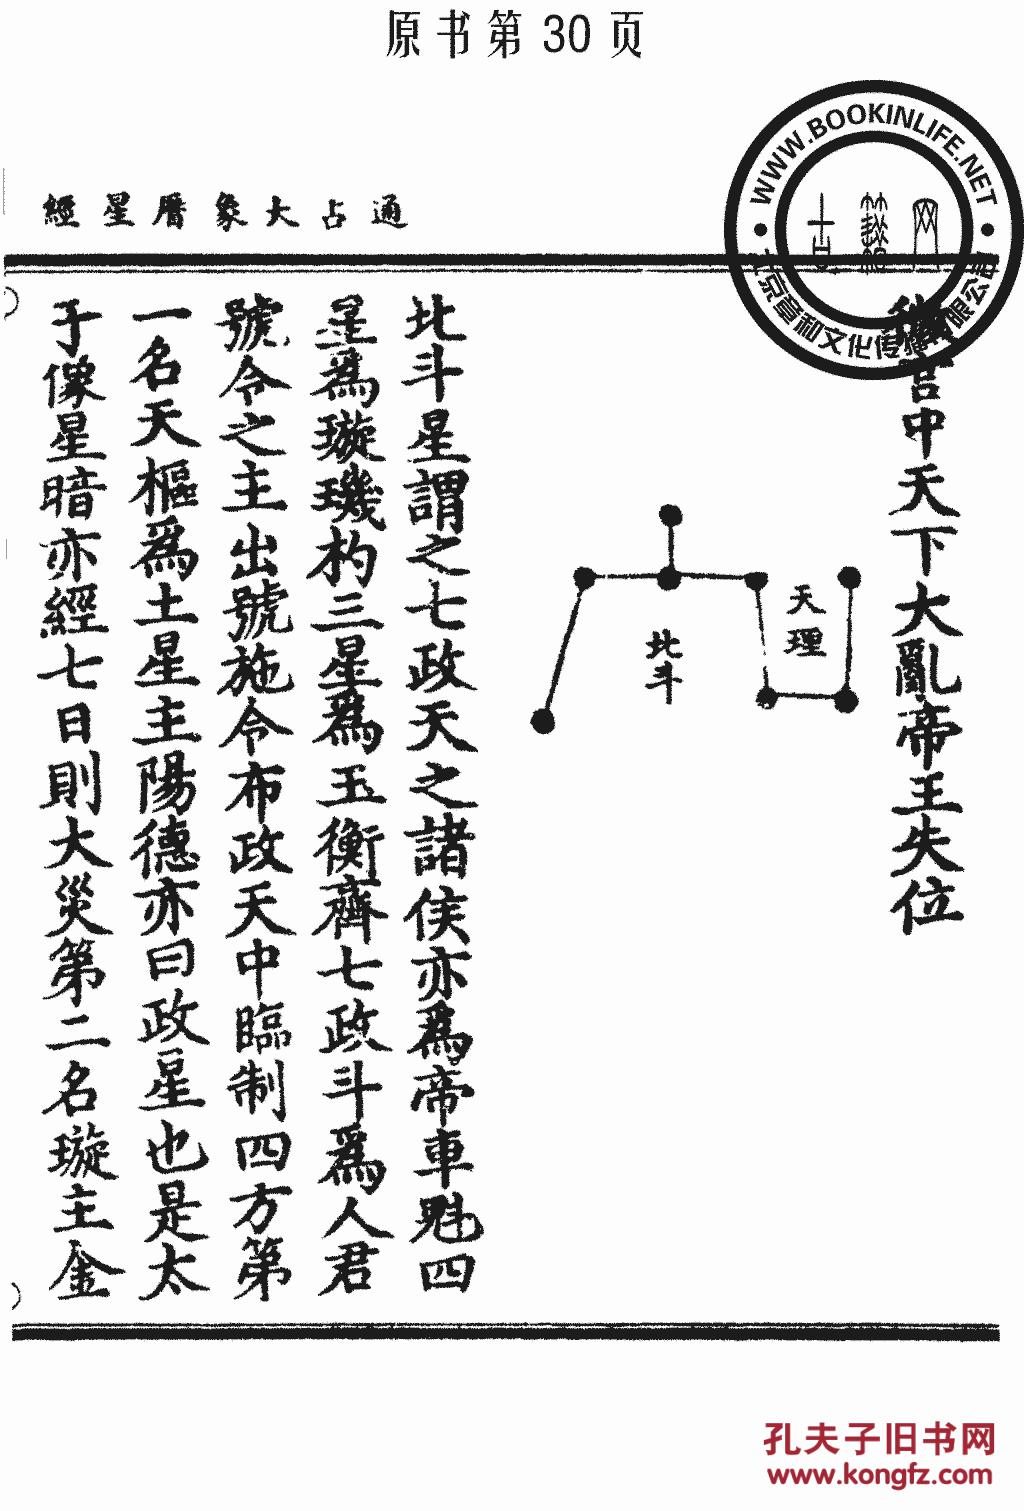 原书第30页
WWW.BOOKINLIFE.NET
京章和文化传播有限公司
通占大象曆星經
宫中天下大亂帝王失位
天理
北斗
北斗星謂之七政天之諸侯亦為帝車魁四
星為璇璣杓三星為玉衡齊七政斗為人君
號令之主出號施令布政天中臨制四方第
一名天樞為土星主陽德亦曰政星也是太
子像星暗亦經七日則大災第二名璇主金
孔夫子旧书网
www.kongfz.com